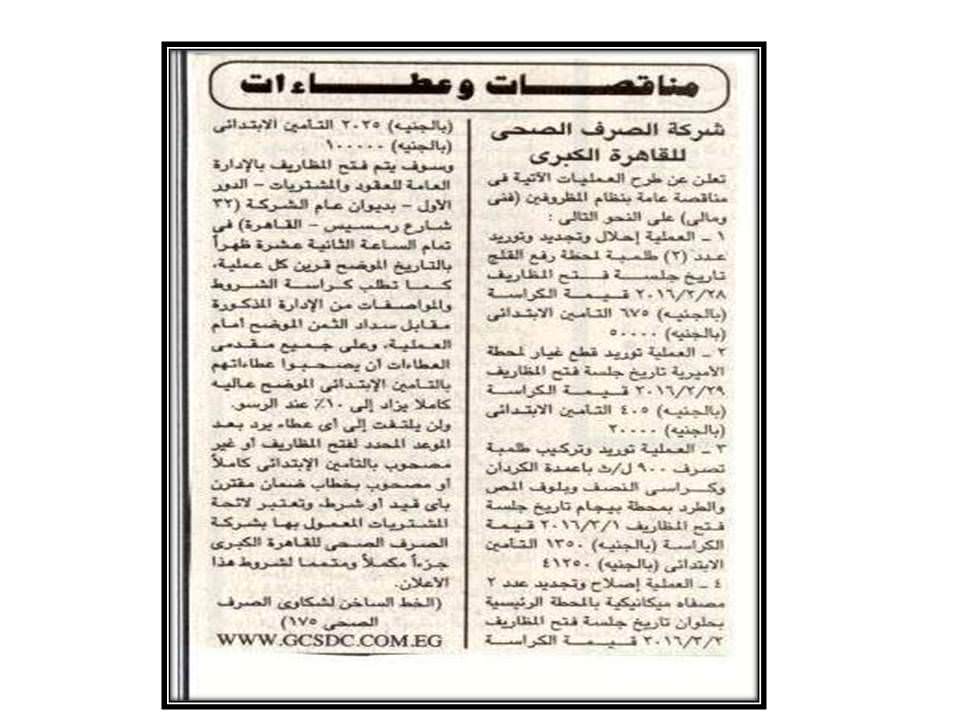 مناقصات وعطاءات
شركة الصرف الصحى
للقاهرة الكبرى
تعلن عن طرح العمليات الآتية فى
مناقصة عامة بنظام المظروفين (فنى
ومالى) على النحو التالى :
١ ـ العملية إحلال وتجديد وتوريد
عدد (٢) طلمبة لمحطة رفع القلج
تاريخ جلسة فتح المظاريف
٢٠١٦/٢/٢٨ قيمة الكراسة
(بالجنيه) ٦٧٥ التأمين الابتدائى
(بالجنيه) ٥٠٠٠٠
٢ ـ العملية توريد قطع غيار لمحطة
الأميرية تاريخ جلسة فتح المظاريف
٢٠١٦/٢/٢٩ قيمة الكراسة
(بالجنيه) ٤٠٥ التأمين الابتدائى
(بالجنيه) ٢٠٠٠٠
٣ ـ العملية توريد وتركيب طلمبة
تصرف ٩٠٠ ل/ث باعمدة الكردان
وكراسى النصف وبلوف المص
والطرد بمحطة بيجام تاريخ جلسة
فتح المظاريف ٢٠١٦/٣/١ قيمة
الكراسة (بالجنيه) ١٣٥٠ التأمين
الابتدائى (بالجنيه) ٤١٢٥٠
٤ ـ العملية إصلاح وتجديد عدد ٢
مصفاه ميكانيكية بالمحطة الرئيسية
بحلوان تاريخ جلسة فتح المظاريف
٢٠١٦/٣/٢ قيمة الكراسة
(بالجنيه) ٢٠٢٥ التأمين الابتدائى
(بالجنيه) ١٠٠٠٠٠
وسوف يتم فتح المظاريف بالإدارة
العامة للعقود والمشتريات – الدور
الأول – بديوان عام الشركة (٣٢
شارع رمسيس – القاهرة) فى
تمام الساعة الثانية عشرة ظهراً
بالتاريخ الموضح قرين كل عملية،
كما تطلب كراسة الشروط
والمواصفات من الإدارة المذكورة
مقابل سداد الثمن الموضح أمام
العملية، وعلى جميع مقدمى
العطاءات أن يصحبوا عطاءاتهم
بالتأمين الإبتدائى الموضح عاليه
كاملا يزاد إلى ١٠٪ عند الرسو.
ولن يلتفت إلى أى عطاء يرد بعد
الموعد المحدد لفتح المظاريف أو غير
مصحوب بالتأمين الإبتدائى كاملاً
أو مصحوب بخطاب ضمان مقترن
بأى قيد أو شرط، وتعتبر لائحة
المشتريات المعمول بها بشركة
الصرف الصحى للقاهرة الكبرى
جزءاً مكملاً ومتمما لشروط هذا
الاعلان.
(الخط الساخن لشكاوى الصرف
الصحى ١٧٥)
WWW.GCSDC.COM.EG